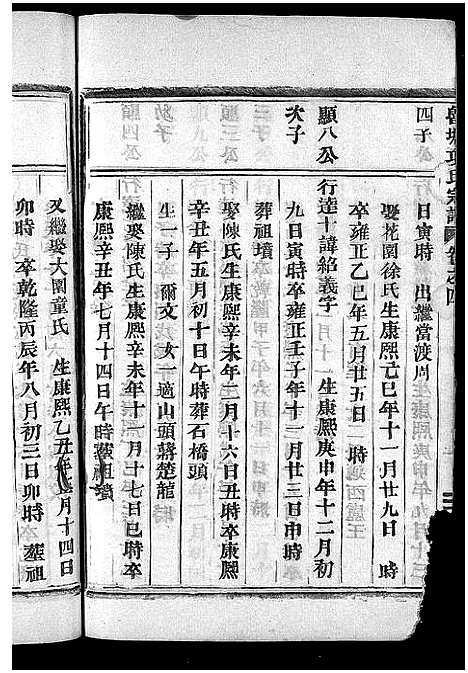 氏宗譜 卷之四
四子
日寅時 出繼當渡周
娶花園徐氏生康熙亡巳年十一月廿九日 時
卒雍正乙巳年五月廿五日 時
顯八公 行達十諱紹義字 生康熙庚申年十二月初
次子
九日寅時卒雍正壬子年十一月廿三日申時
葬祖墳
娶陳氏生康熙辛未年二月十六日丑時卒康熙
辛丑年五月初十日午時葬石橋頭
生一子 爾文 女一適山頭蔣楚龍
繼娶陳氏生康熙辛未年十一月十七日巳時卒
康熙辛丑年七月十四日午時葬祖墳
又繼娶大園童氏 生康熙乙丑年 月十四日
卯時 卒乾隆丙辰年八月初三日卯時 葬祖